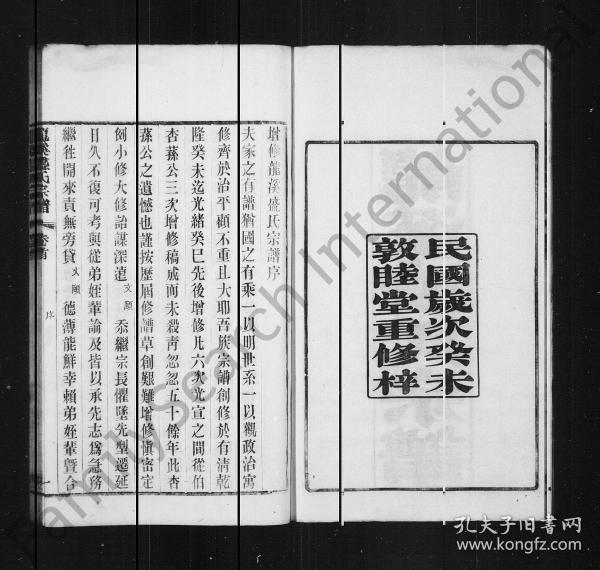 民國歲次癸未
敦睦堂重修梓
增修龍溪盛氏宗譜序
夫家之有譜猶國之有乘一以明世系一以觀政治寓
修齊於治平顧不重且大耶吾族宗譜創修於有清乾
隆癸未迄光緒癸巳先後增修凡六次光宣之間從伯
杏蓀公三次增修稿成而未殺靑忽忽五十餘年此杏
蓀公之遺憾也謹按歷屆修譜草創艱難增修愼審定
例小修大修詒謀深遠文頤忝繼宗長懼墜先型遷延
日久不復可考與從弟姪輩論及皆以承先志爲急務
繼往開來責無旁貸文頤德薄能鮮幸賴弟姪輩曁合
龍溪盛氏宗譜
卷首
序
一
FamilySearch International
孔夫子旧書网
www.kongfz.com